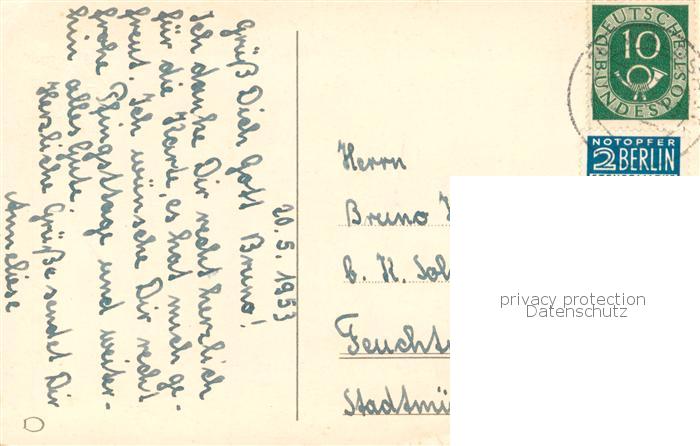 20.5.1953
Grüß Dich Gott Bruno!
Ich danke Dir recht herzlich
für die Karte, es hat mich ge-
freut. Ich wünsche Dir recht
frohe Pfingsttage und weiter-
hin alles Gute.
Herzliche Grüße sendet Dir
Anneliese
DEUTSCHE BUNDESPOST
10
NOTOPFER
2 BERLIN
Herrn
Bruno
b. H.
privacy protection
Datenschutz